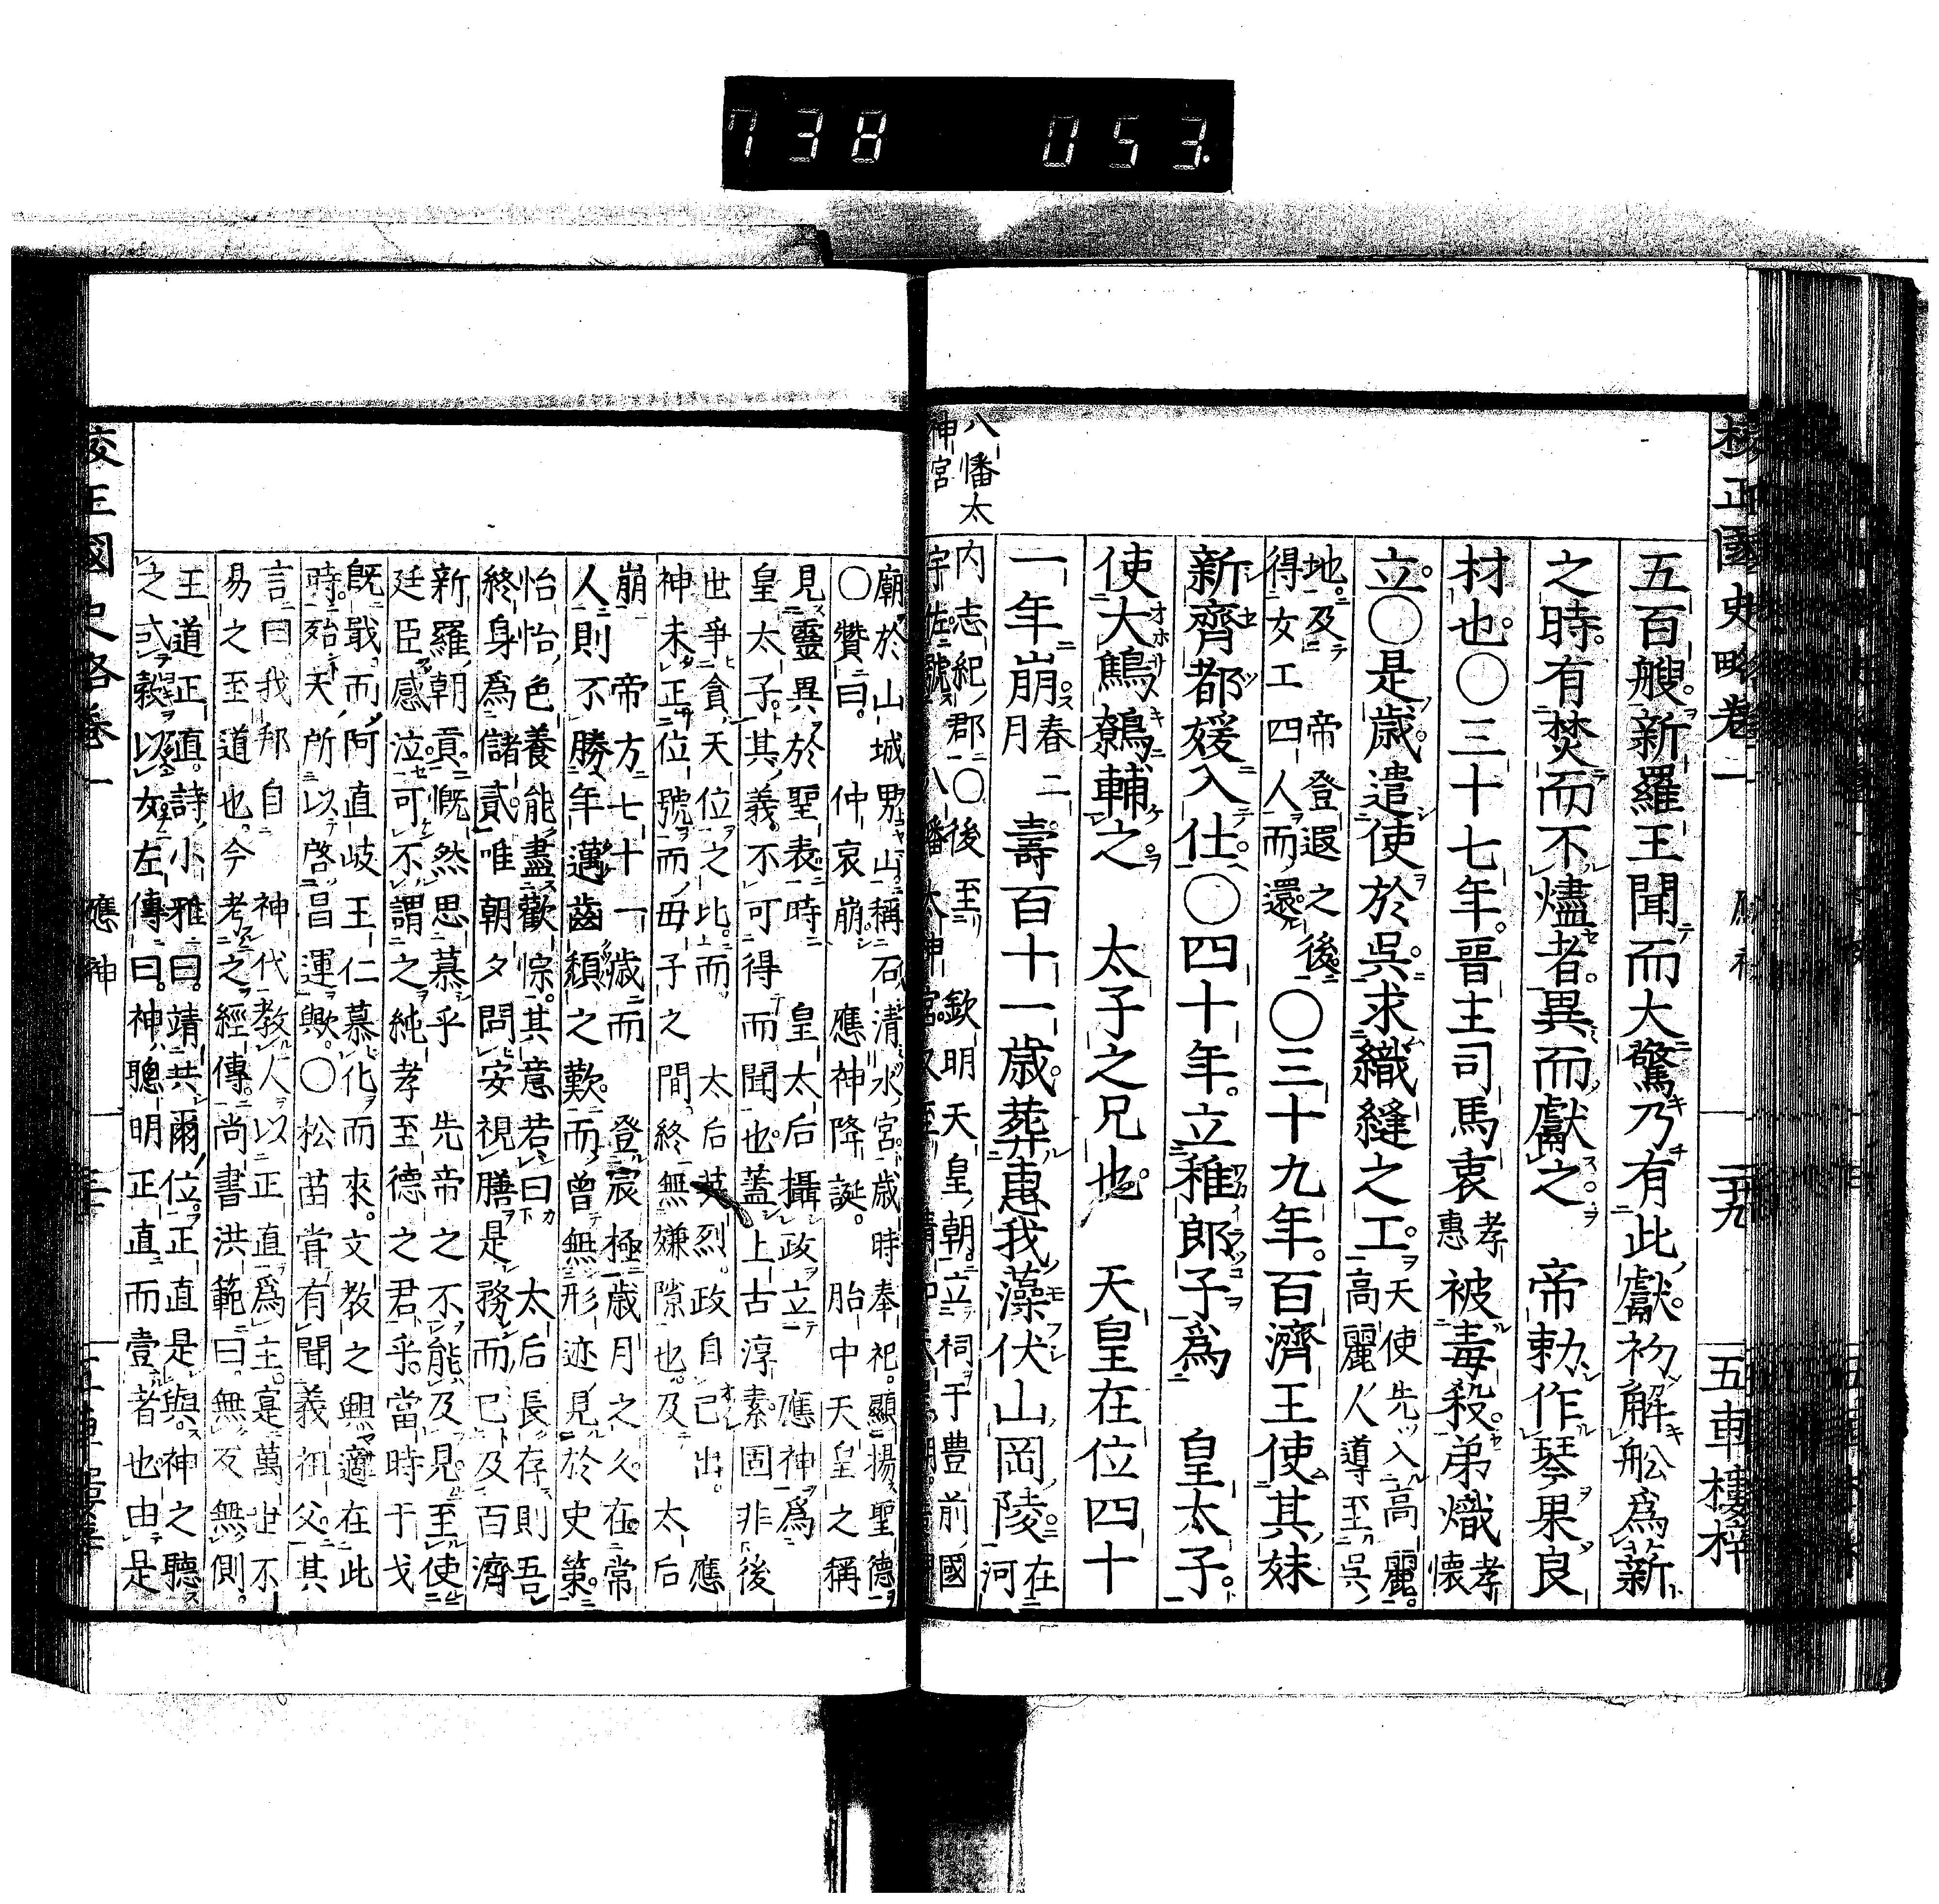 738 053
校正國史略卷一 應神 二十九 五車樓梓
五百艘新羅王聞而大驚乃有此獻初解船爲薪
之時有焚而不燼者異而獻之 帝勅作琴果良
材也〇三十七年晉主司馬衷孝惠被毒殺弟熾孝懷
立〇是歲遣使於吳求織縫之工天使先入高麗高麗人導至吳
地及 帝登遐之後得女工四人而還〇三十九年百濟王使其妹
新齊都媛入仕〇四十年立稚郎子爲 皇太子
使大鷦鷯輔之 太子之兄也 天皇在位四十
一年崩春二月壽百十一歲葬惠我藻伏山岡陵在河
內志紀郡〇後至 欽明天皇朝立祠于豊前國
宇佐號八幡太神宮
八幡太
神宮
廟於山城男山稱石清水宮歲時奉祀顯揚聖德
〇贊曰 仲哀崩 應神降誕 胎中天皇之稱
見靈異於聖表時 皇太后攝政立 應神爲
皇太子其義不可得而聞也蓋上古淳素固非後
世爭貪天位之比而 太后英烈政自己出 應
神未正位號而母子之間終無嫌隙也及 太后
崩 帝方七十一歲而 登宸極歲月之久在常
人則不勝年邁齒頹之歎而曾無形迹見於史策
怡怡色養能盡歡悰其意若曰 太后長存則吾
終身爲儲貳唯朝夕問安視膳是務而已及百濟
新羅朝貢慨然思慕乎 先帝之不能及見至使
廷臣感泣可不謂之純孝至德之君乎當時干戈
既戢而阿直岐王仁慕化而來文敎之興適在此
時殆天所以啓昌運歟〇松苗甞有聞義祖父其
言曰我邦自 神代敎人以正直爲主寔萬世不
易之至道也今考之經傳尚書洪範曰無反無側
王道正直詩小雅曰靖共爾位正直是與神之聽
之式穀以女左傳曰神聰明正直而壹者也由是
校正國史略卷一 應神